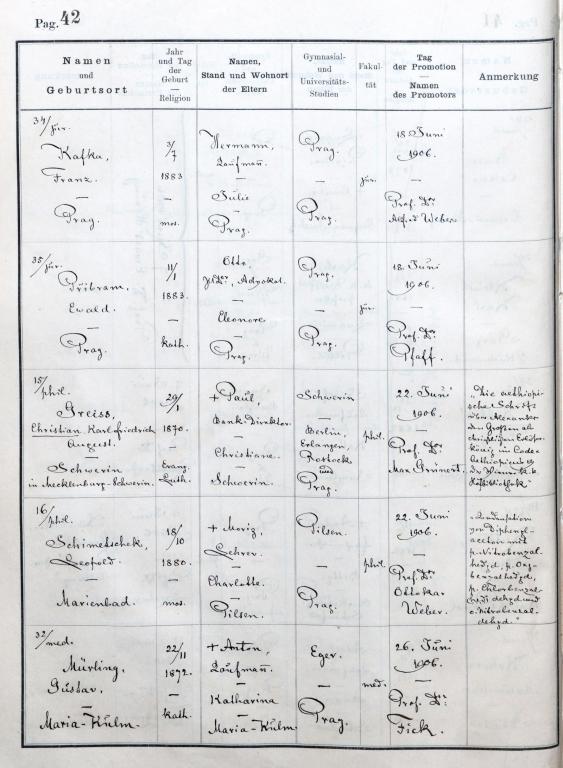 Pag. 42
Namen
und
Geburtsort
Jahr
und Tag
der
Geburt
Religion
Namen,
Stand und Wohnort
der Eltern
Gymnasial-
und
Universitäts-
Studien
Fakul-
tät
Tag
der Promotion
Namen
des Promotors
Anmerkung
34/jur.
Kafka,
Franz.
—
Prag.
3/7
1883
—
mos.
Hermann,
Kaufmann.
—
Julie
—
Prag.
Prag.
—
Prag.
jur.
18 Juni
1906.
—
Prof. Dr
Alf. v Weber
35/jur.
Přibram,
Ewald.
—
Prag.
11/1
1883.
—
kath.
Otto,
JUDr., Advokat.
—
Eleonore
—
Prag.
Prag.
—
Prag.
jur.
18. Juni
1906.
—
Prof. Dr
Pfaff.
15/phil.
Greiss,
Christian Karl Friedrich
August.
—
Schwerin
in Mecklenburg-Schwerin.
29/1
1870.
—
Evang.
Luth.
+ Paul,
Bank-Direktor.
—
Christiane.
—
Schwerin.
Schwerin
—
Berlin,
Erlangen,
Rostock
und
Prag.
phil.
22. Juni
1906.
—
Prof. Dr
Max Grünert.
„Die aethiopi-
sche Schrift
über Alexander
den Großen als
christlichen
könig im Codex
Aethiopicus
der Wiener k. k.
Hofbibliothek"
16/phil.
Schimetschek,
Leopold.
—
Marienbad.
18/10
1880.
—
mos.
+ Moriz,
Lehrer.
—
Charlotte.
—
Pilsen.
Pilsen.
—
Prag.
phil.
22. Juni
1906.
—
Prof. Dr
Ottokar
Weber.
„Kondensation
von Diphenyl-
aceton mit
p. Nitrobenzal-
dehyd, p. Oxy-
benzaldehyd,
p. Chlorbenzal-
dehyd und
o. Nitrobenzal-
dehyd."
32/med.
Mürling,
Gustav.
—
Maria-Kulm.
22/11
1872.
—
kath.
+ Anton,
Kaufmann.
—
Katharina
—
Maria-Kulm.
Eger.
—
Prag.
med.
26. Juni
1906.
—
Prof. Dr:
Fick.